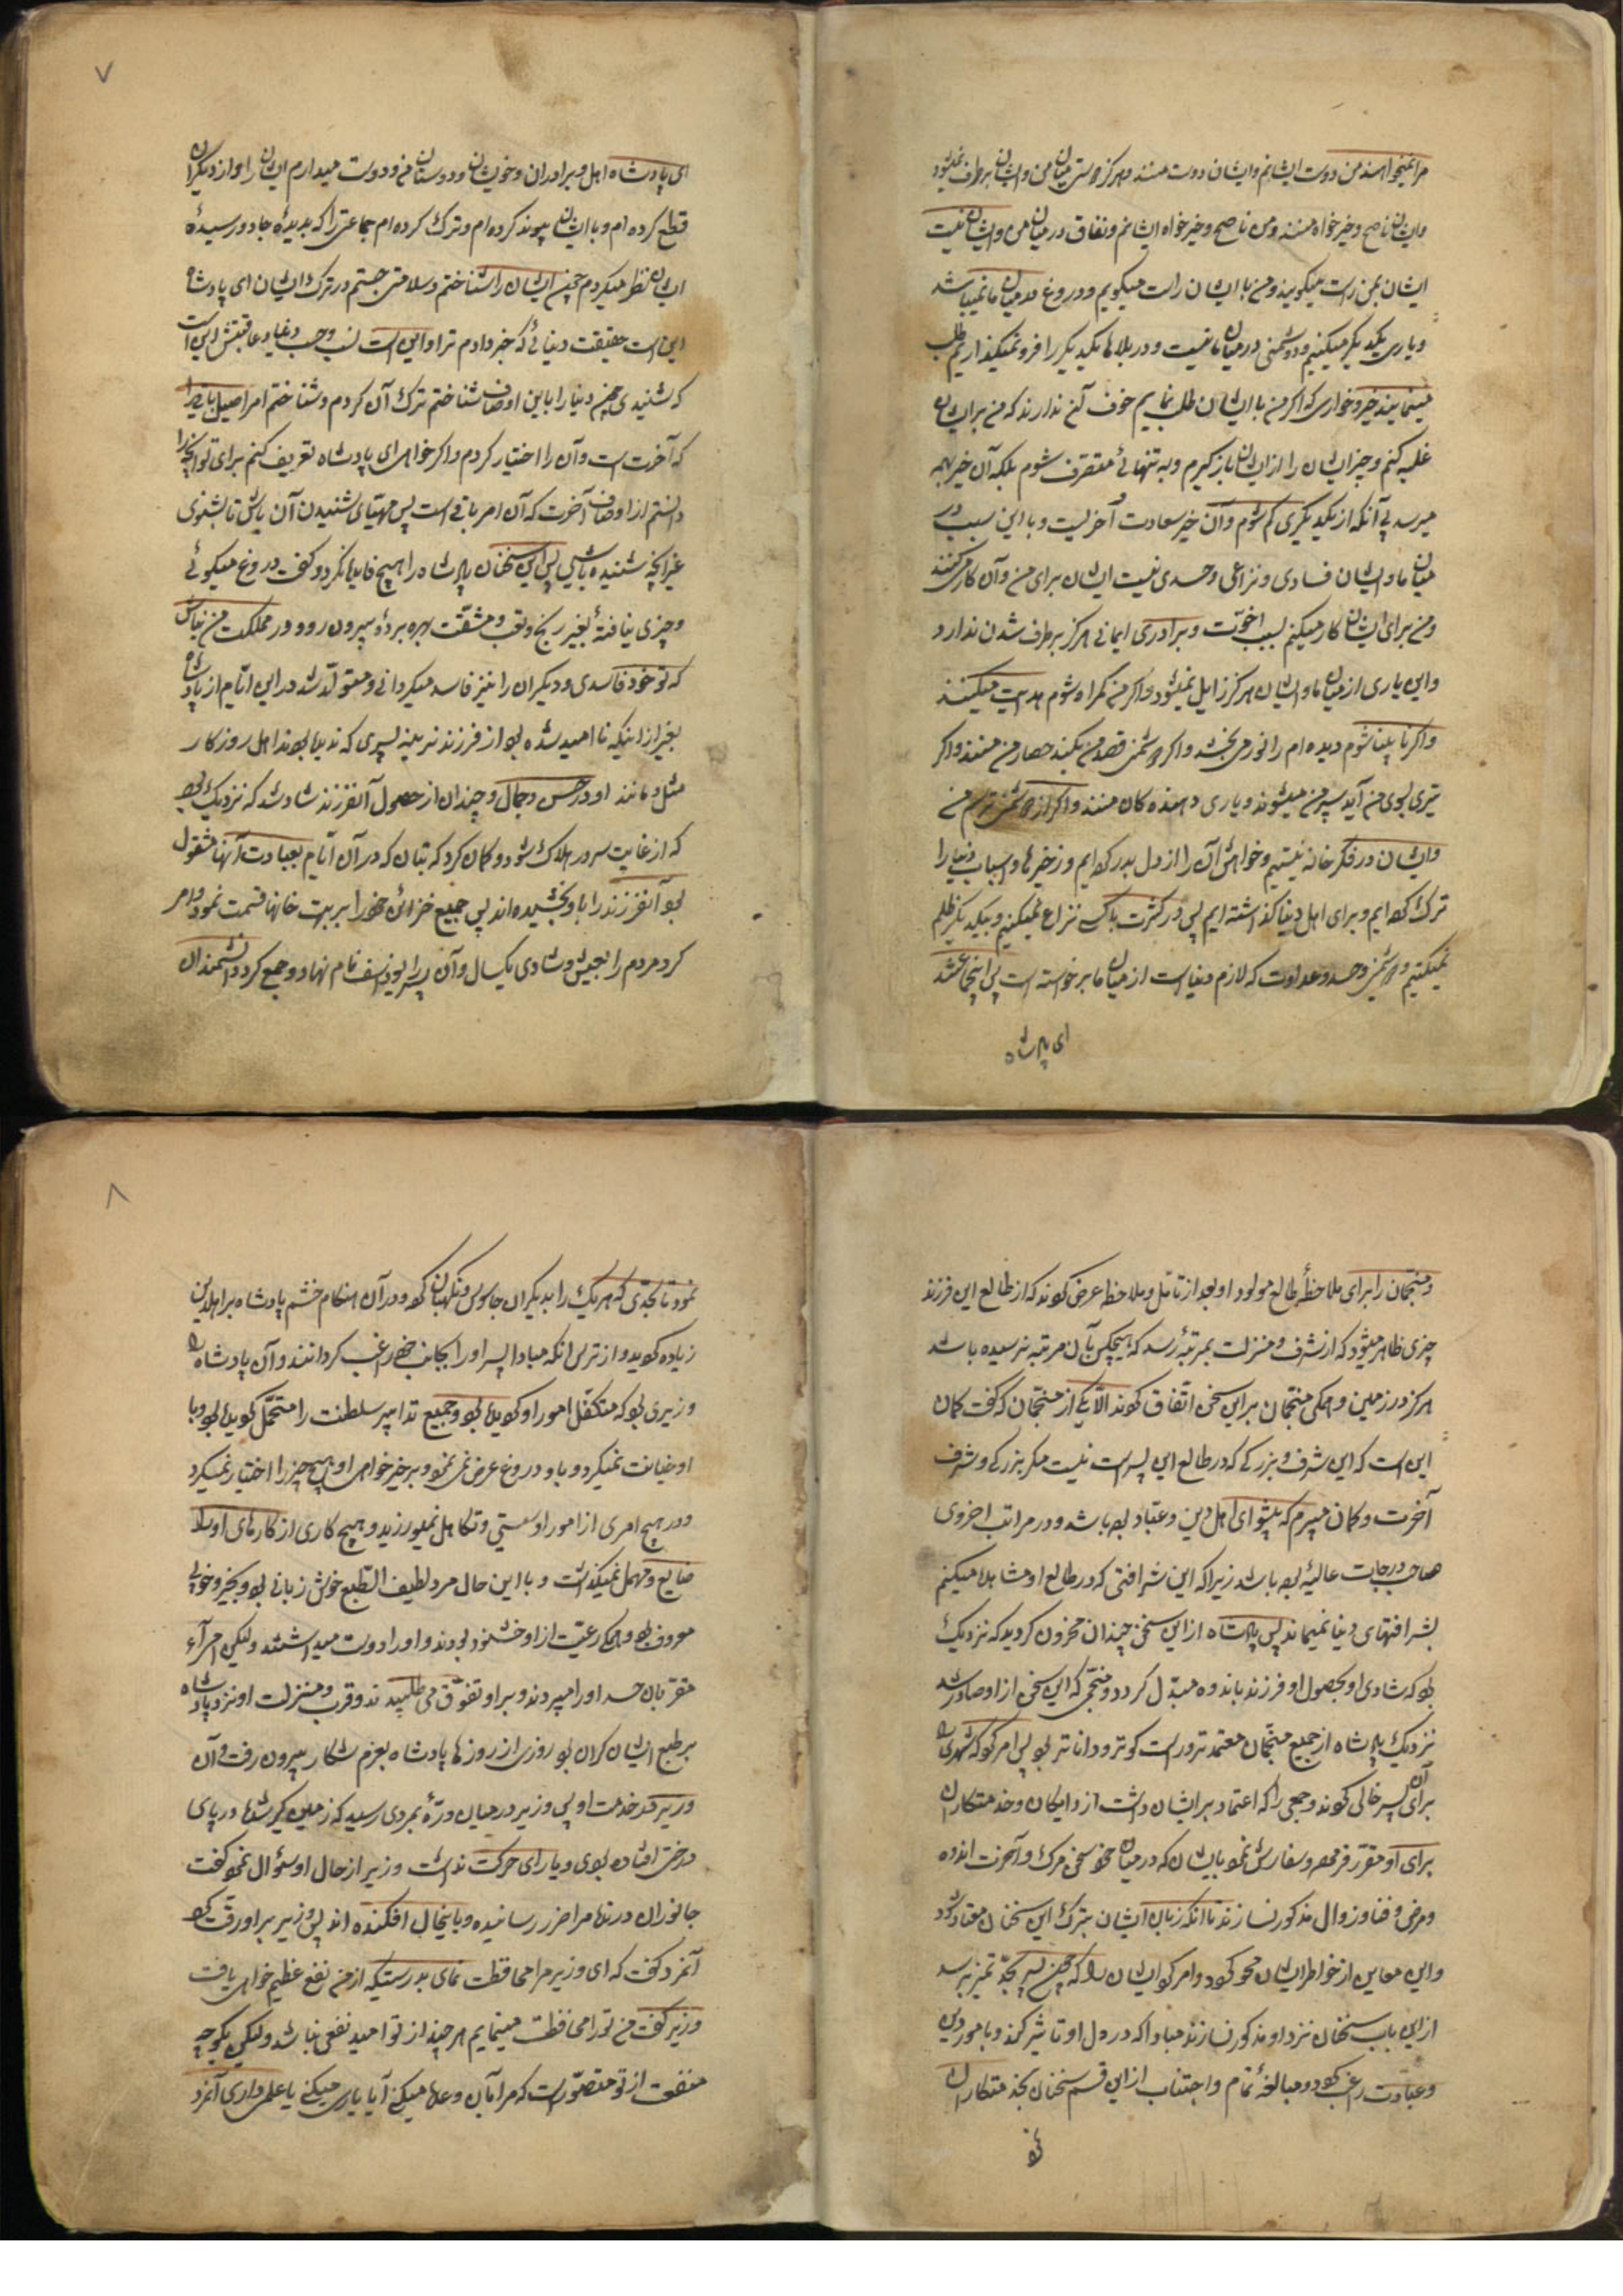 مرا نمیخواهند من دوست ایشانم و ایشان دوست منند و هرگز دوستی میان من و ایشان برطرف نمیشود
و ایشان ناصح و خیرخواه منند و من ناصح و خیرخواه ایشانم و نفاق در میان من و ایشان نیست
ایشان بمن راست میگویند و من با ایشان راست میگویم و دروغ در میان ما نمیباشد
و یاری یکدیگر میکنیم و دشمنی در میان ما نیست و در بلاها یکدیگر را فرو نمیگذاریم طلب
مینمایند خیر و خواری که اگر من با ایشان طلب نمایم خوف آن ندارند که من بر ایشان
غلبه کنم و چیز ایشان را از ایشان بازگیرم و به تنهائی متصرف شوم بلکه آن خیر بهمه
میرسد بی آنکه از یکدیگری کم شوم و آن خیر سعادت آخریست و باین سبب در
میان ما و ایشان فسادی و نزاعی و حسدی نیست ایشان برای من و آن کار میکنند
و من برای ایشان کار میکنم بسبب اخوت و برادری ایمانی هرگز برطرف شدن ندارد
و این یاری از میان ما و ایشان هرگز زایل نمیشود و اگر من گمراه شوم هدایت میکنند
و اگر نابینا شوم دیده ام را نور می بخشند و اگر دشمن قصد من بکند حصار من منند و اگر
تیری بسوی من آید سپر من میشوند و یاری دهنده کان منند و اگر از دشمن ترسم من
و ایشان در فکر خانه نیستیم و خواهش آن را از دل بدر کرده ایم و ذخیرها و اسباب دنیا را
ترک کرده ایم و برای اهل دنیا گذاشته ایم پس در کثرت با کسی نزاع نمیکنیم و بیکدیگر ظلم
نمیکنیم و دشمنی و حسد و عداوت که لازم دنیاست از میان ما برخواسته است پس اینجماعتند
ای پادشاه
۷
ای پادشاه اهل و برادران و خویشان و دوستان من و دوست میدارم ایشان را و از دیگران
قطع کرده ام و با ایشان پیوند کرده ام و ترک کرده ام جماعتی را که بدیدۀ جادو رسیدۀ
ایشان نظر میکردم چون ایشان را شناختم و سلامتی جستم در ترک ایشان ای پادشاه
این است حقیقت دنیائی که خبر دادم ترا و این است نسب و حسب دنیا و عاقبتش این است
که شنیدی چون دنیا را باین اوصاف شناختم ترک آن کردم و شناختم امر اصیل باقی را
که آخرت است و آن را اختیار کردم و اگر خواهی ای پادشاه تعریف کنم برای تو آنچه را
دانستم از اوصاف آخرت که آن امر باقی است پس مهیای شنیدن آن باش تا بشنوی
غیر آنچه شنیده باشی پس این سخنان پادشاه را هیچ فایده نکرد و گفت دروغ میگوئی
و چیزی نیافتۀ بغیر رنج و تعب و مشقت بهره بردۀ و بیرون رو و در مملکت من نباش
که تو خود فاسدی و دیگران را نیز فاسد میگردانی و متولد شد در این ایام از پادشاه
بغیر از اینکه ناامید شده بود از فرزند نرینه پسری که ندیده بودند اهل روزگار
مثل و مانند او در حسن و جمال و چندان از حصول آنفرزند شاد شد که نزدیک بود
که از غایت سرور هلاک شود و گمان کرد که بتان که در آن ایام بعبادت آنها مشغول
بود آنفرزند را باو بخشیده اند پس جمیع خزائن خود را بر بیت خانها قسمت نمود و امر
کرد مردم را بعیش و شادی یکسال و آن پسر را یوذاسف نام نهاد و جمع کرد دانشمندان
و منجمان را برای ملاحظۀ طالع مولود او بعد از تأمل و ملاحظه عرض کردند که از طالع این فرزند
چیزی ظاهر میشود که از شرف و منزلت بمرتبۀ رسد که هیچکس بآن مرتبه نرسیده باشد
هرگز در زمین و همگی منجمان بر این سخن اتفاق کردند الا یکی از منجمان که گفت گمان
این است که این شرف و بزرگی که در طالع این پسر است نیست مگر بزرگی و شرف
آخرت و گمان میبرم که پیشوای اهل دین و عباد بوده باشد و در مراتب اخروی
صاحب درجات عالیه بوده باشد زیرا که این شرافتی که در طالع او مشاهده میکنم
بشرافتهای دنیا نمیماند پس پادشاه از این سخن چندان محزون گردید که نزدیک
بود که شادی او بحصول او فرزند باندوه مبدل گردد و منجمی که این سخن از او صادر شد
نزدیک پادشاه از جمیع منجمان معتمدتر و راست گوتر و داناتر بود پس امر کرد که شهری را
برای آن پسر خالی کردند و جمعی را که اعتماد بر ایشان داشت از دایکان و خدمتکاران
برای او مقرر فرمود و سفارش نمود بایشان که در میان خود سخن مرگ و آخرت و اندوه
و مرض و فنا و زوال مذکور نسازند تا آنکه زبان ایشان بترک این سخنان معتاد شود
و این معانی از خواطر ایشان محو گردد و امر کرد ایشان را که چون پسر بحد تمیز برسد
از این باب سخنان نزد او مذکور نسازند مبادا که در دل او تأثیر کند و بامور دین
و عبادت راغب گردد و مبالغۀ تمام و اجتناب از این قسم سخنان بخدمتکاران
نمود
۸
نمود تا بحدی که هر یک را بدیگران جاسوس و نگهبان کرد و در آن هنگام خشم پادشاه بر اهل دین
زیاده گردید و از ترس آنکه مبادا پسر او را بجانب خود راغب گردانند و آن پادشاه را
وزیری بود که متکفل امور او گردیده بود و جمیع تدابیر سلطنت را متحمل گردیده بود و با
او خیانت نمیکرد و باو دروغ عرض نمی نمود و بر خیرخواهی او هیچ چیز را اختیار نمیکرد
و در هیچ امری از امور او سستی و تکاهل نمیورزید و هیچ کاری از کارهای او را
ضایع و مهمل نمیگذاشت و با این حال مرد لطیف الطبع خوش زبانی بود و بخیر و خوبی
معروف بود و همگی رعیت از او خشنود بودند و او را دوست میداشتند ولیکن امرآء
مقربان حسد او را میبردند و بر او تفوق می طلبیدند و قرب و منزلت او نزد پادشاه
بر طبع ایشان گران بود روزی از روزها پادشاه بعزم شکار بیرون رفت و آن
وزیر در خدمت او پس وزیر در میان درۀ بمردی رسید که زمین گیر شده در پای
درختی افتاده بود و یارای حرکت نداشت وزیر از حال او سئوال نمود گفت
جانوران درنده مرا ضرر رسانیده و باینحال افکنده اند پس وزیر بر او رقت کرد
آنمرد گفت که ای وزیر مرا محافظت نمای بدرستیکه از من نفع عظیم خواهی یافت
وزیر گفت من تو را محافظت مینمایم هر چند از تو امید نفعی نباشد ولیکن بگو چه
منفعت از تو متصور است که مرا بآن وعده میکنی آیا یاری میکنی یا علمی داری آنمرد